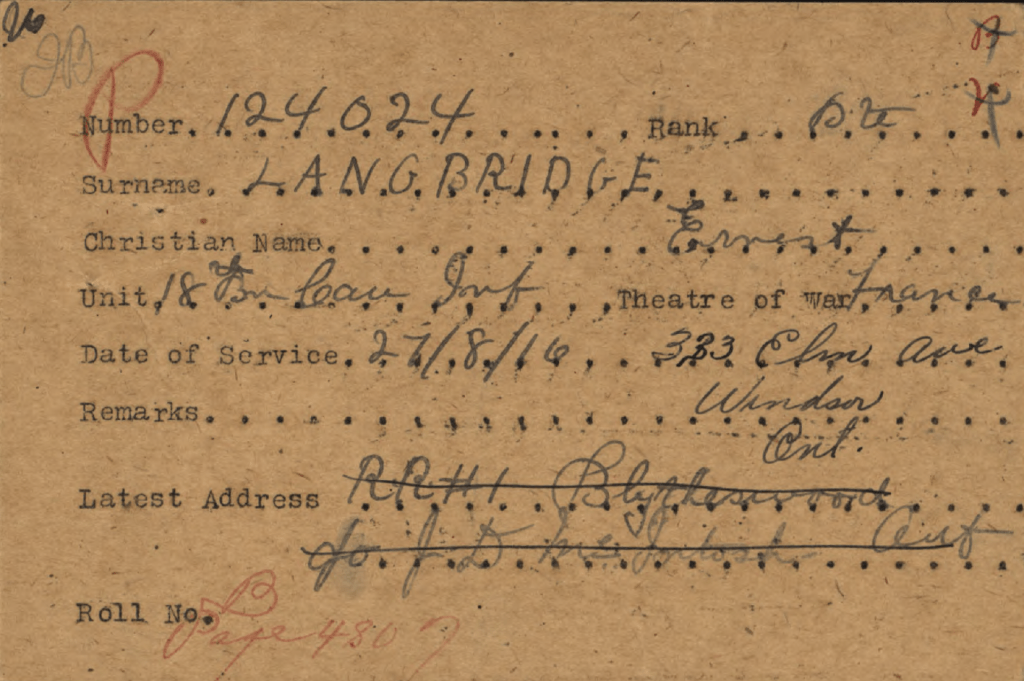 26
JB
P
B
Number. 124024 Rank Pte
Surname. LANGBRIDGE
Christian Name. Ernest
Unit. 18th Bn Can Inf Theatre of War France
Date of Service. 27/8/16 333 Elm Ave
Remarks. Windsor
Ont.
Latest Address RR#1 Blytheswood
c/o J D McIntosh Ont
Roll No. B
Page 4807